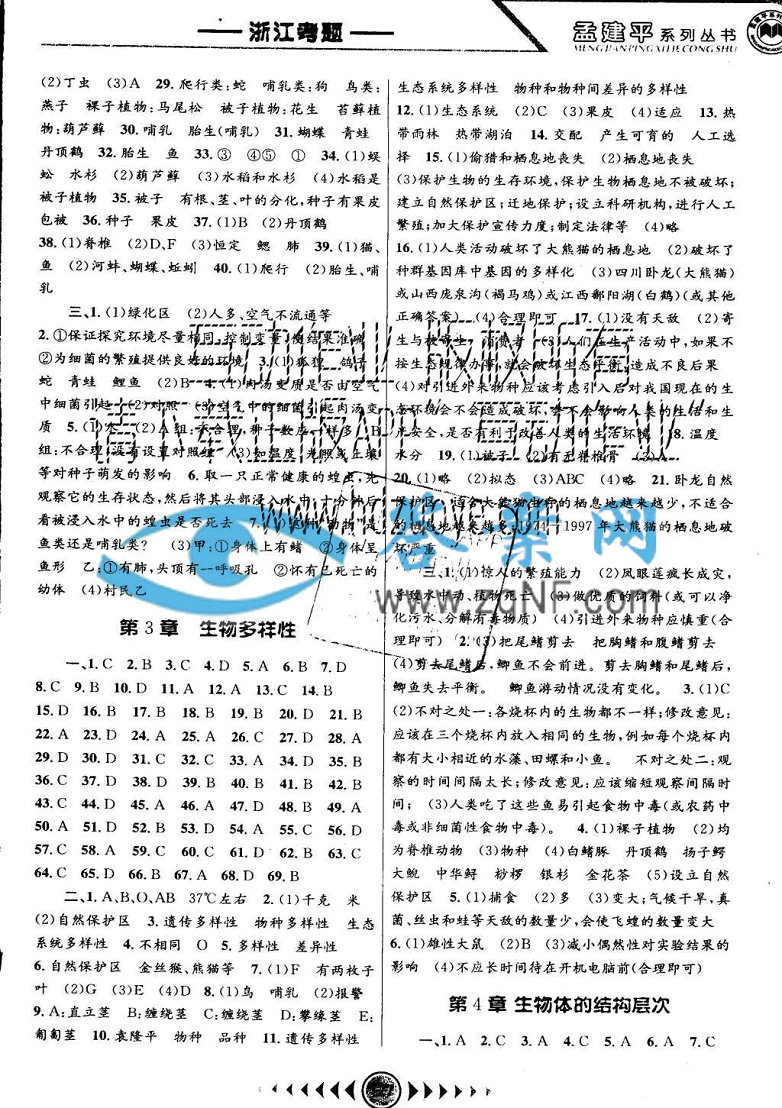 浙江考题
孟建平系列丛书
MENGJIANPING XILIE CONGSHU
(2)丁虫 (3)A 29. 爬行类:蛇 哺乳类:狗 鸟类:
燕子 裸子植物:马尾松 被子植物:花生 苔藓植
物:葫芦藓 30. 哺乳 胎生(哺乳) 31. 蝴蝶 青蛙
丹顶鹤 32. 胎生 鱼 33. ③ ④⑤ ① 34. (1)蜈
蚣 水杉 (2)葫芦藓 (3)水稻和水杉 (4)水稻是
被子植物 35. 被子 有根、茎、叶的分化,种子有果皮
包被 36. 种子 果皮 37. (1)B (2)丹顶鹤
38. (1)脊椎 (2)D、F (3)恒定 鳃 肺 39. (1)猫、
鱼 (2)河蚌、蝴蝶、蚯蚓 40. (1)爬行 (2)胎生、哺
乳
三、1. (1)绿化区 (2)人多、空气不流通等
2. ①保证探究环境尽量相同,控制变量,使结果准确
②为细菌的繁殖提供良好的环境 3. (1)狐狸 鸽子
蛇 青蛙 鲤鱼 (2)B 4. (1)肉汤变质是否由空气
中细菌引起 (2)对照 (3)空气中的细菌引起肉汤变
质 5. (1)水 (2)A组:不合理,种子数应一样多 B
组:不合理,没有设置对照组 (3)如温度、光照或土壤
等对种子萌发的影响 6. 取一只正常健康的蝗虫,先
观察它的生存状态,然后将其头部浸入水中,十分钟后
看被浸入水中的蝗虫是否死去 7. (1)这种“动物”是
鱼类还是哺乳类? (3)甲:①身体上有鳍 ②身体呈
鱼形 乙:①有肺,头顶有一呼吸孔 ②怀有已死亡的
幼体 (4)村民乙
第3章 生物多样性
一、1. C 2. B 3. C 4. D 5. A 6. B 7. D
8. C 9. B 10. D 11. A 12. A 13. C 14. B
15. D 16. B 17. B 18. B 19. B 20. D 21. B
22. A 23. D 24. A 25. A 26. C 27. D 28. A
29. C 30. A 31. B 32. B 33. D 34. D 35. B
36. C 37. D 38. D 39. B 40. C 41. B 42. B
43. C 44. D 45. A 46. A 47. D 48. B 49. A
50. A 51. D 52. D 53. B 54. D 55. D 56. B
57. C 58. A 59. C 60. C 61. D 62. B 63. C
64. C 65. D 66. D 67. A 68. D 69. B
二、1. A、B、O、AB 37℃左右 2. (1)千克 米
(2)自然保护区 3. 遗传多样性 物种多样性 生态
系统多样性 4. 不相同 O 5. 多样性 差异性
6. 自然保护区 金丝猴、熊猫等 7. (1)F 有两枚子
叶 (2)G (3)E 8. (1)鸟 哺乳 (2)报警
9. A:直立茎 B:缠绕茎 C:缠绕茎 D:攀缘茎 E:
匍匐茎 10. 袁隆平 物种 品种 11. 遗传多样性
生态系统多样性 物种和物种间差异的多样性
12. (1)生态系统 (2)C (3)果皮 (4)适应 13. 热
带雨林 热带湖泊 14. 交配 产生可育的 人工选
择 15. (1)偷猎和栖息地丧失 (2)栖息地丧失
(3)保护生物的生存环境,保护生物栖息地不被破坏;
建立自然保护区;迁地保护;设立科研机构,进行人工
繁殖;加大保护宣传力度;制定法律等 (4)略
16. (1)人类活动破坏了大熊猫的栖息地 (2)破坏了
种群基因库中基因的多样化 (3)四川卧龙(大熊猫)
或山西庞泉沟(褐马鸡)或江西鄱阳湖(白鹤)(或其他
正确答案) (4)合理即可 17. (1)没有天敌 (2)寄
生与被寄生 消费者 (3)人们在生产活动中,如果不
按生态规律办事,就会破坏生态平衡,造成不良后果
(4)对引进外来物种应该考虑引入后对我国现在的生
态环境会不会造成破坏,会不会影响人类的生活和生
产安全,是否有利于改善人类的生活环境 18. 温度
水分 19. (1)被子 (2)有无脊椎骨 (3)A
20. (1)略 (2)拟态 (3)ABC (4)略 21. 卧龙自然
保护区 适合大熊猫生存的栖息地越来越少,不适合
的栖息地越来越多;1974—1997年大熊猫的栖息地破
坏严重
三、1. (1)惊人的繁殖能力 (2)凤眼莲疯长成灾,
导致水中动、植物死亡 (3)做优质的饲料(或可以净
化污水、分解有毒物质) (4)引进外来物种应慎重(合
理即可) 2. (3)把尾鳍剪去 把胸鳍和腹鳍剪去
(4)剪去尾鳍后,鲫鱼不会前进。剪去胸鳍和尾鳍后,
鲫鱼失去平衡。 鲫鱼游动情况没有变化。 3. (1)C
(2)不对之处一:各烧杯内的生物都不一样;修改意见:
应该在三个烧杯内放入相同的生物,例如每个烧杯内
都有大小相近的水藻、田螺和小鱼。 不对之处二:观
察的时间间隔太长;修改意见:应该缩短观察间隔时
间; (3)人类吃了这些鱼易引起食物中毒(或农药中
毒或非细菌性食物中毒)。 4. (1)裸子植物 (2)均
为脊椎动物 (3)物种 (4)白鳍豚 丹顶鹤 扬子鳄
大鲵 中华鲟 桫椤 银杉 金花茶 (5)设立自然
保护区 5. (1)捕食 (2)多 (3)变大;气候干旱,真
菌、丝虫和蛙等天敌的数量少,会使飞蝗的数量变大
6. (1)雄性大鼠 (2)B (3)减小偶然性对实验结果的
影响 (4)不应长时间待在开机电脑前(合理即可)
第4章 生物体的结构层次
一、1. A 2. C 3. A 4. C 5. A 6. A 7. C
答案网
www.zqNF.com